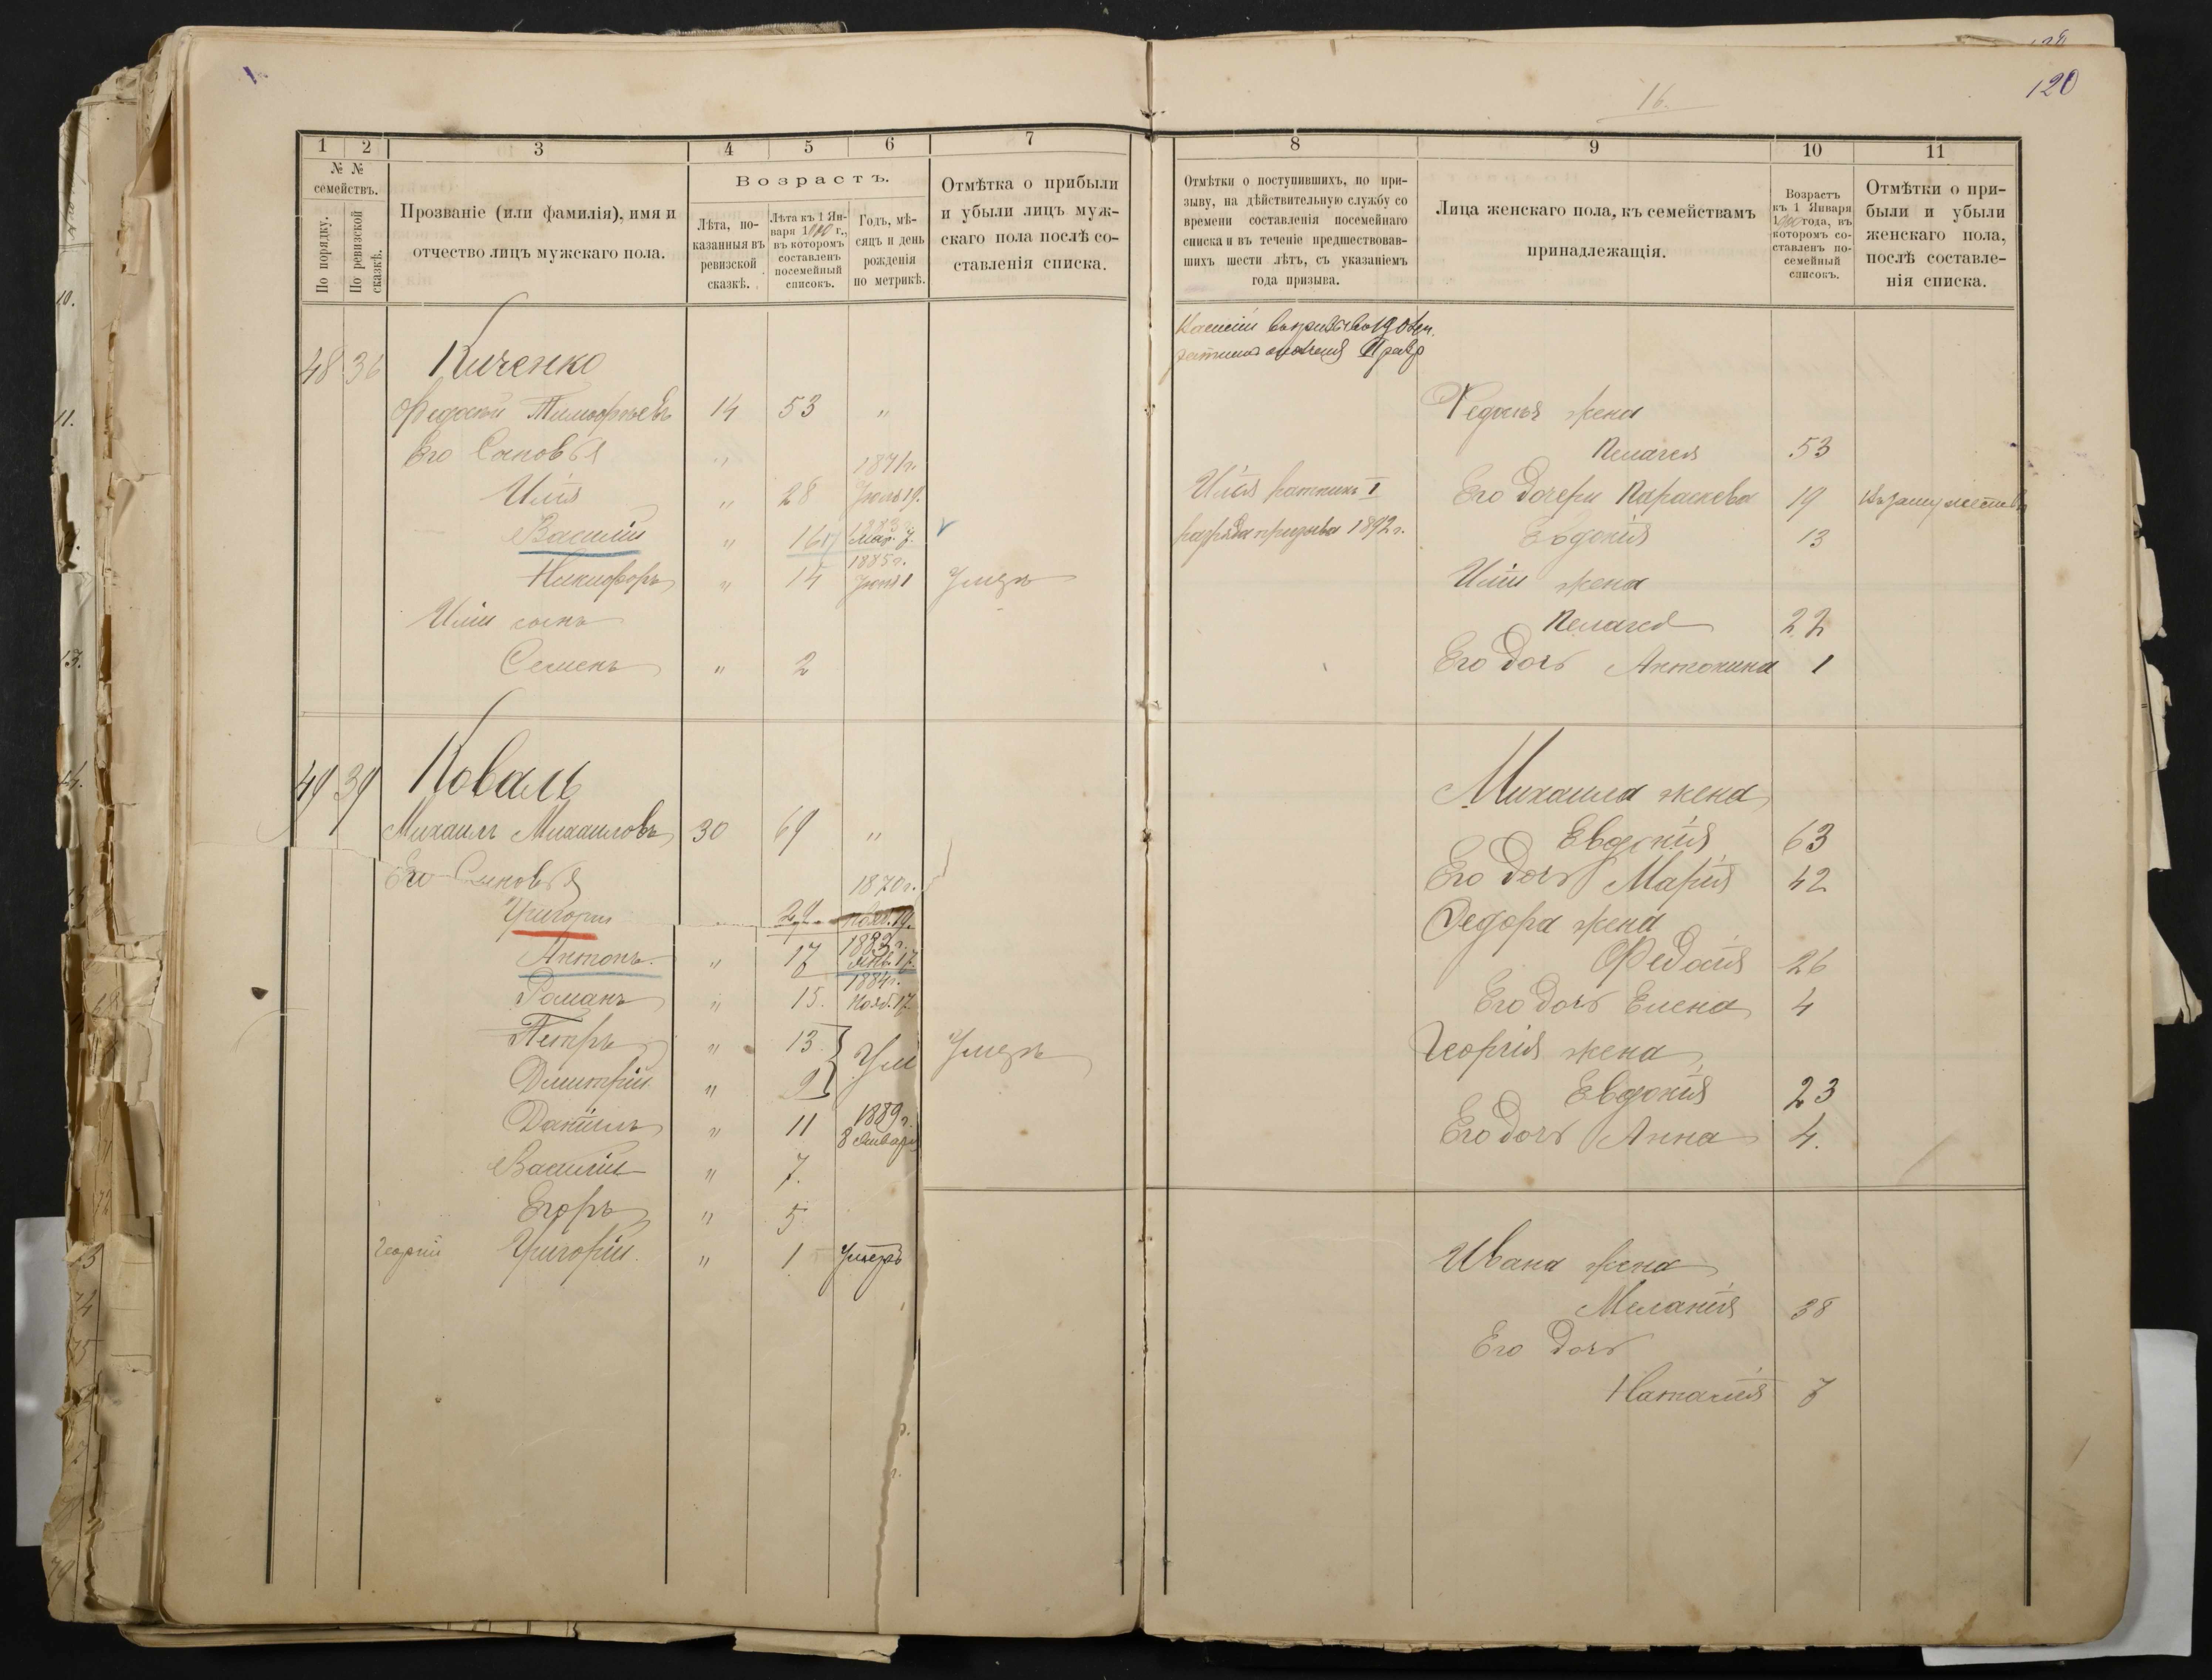 120
16.
1 2 3 4 5 6 7
№ №
семействъ.
По порядку.
По ревизской
сказкѣ.
Прозваніе (или фамилія), имя и
отчество лицъ мужскаго пола.
Возрастъ.
Лѣта, по-
казанныя въ
ревизской
сказкѣ.
Лѣта къ 1 Ян-
варя 1900 г.,
въ которомъ
составленъ
посемейный
списокъ.
Годъ, мѣ-
сяцъ и день
рожденія
по метрикѣ.
Отмѣтка о прибыли
и убыли лицъ муж-
скаго пола послѣ со-
ставленія списка.
48 36 Киченко
Федосій Тимофѣевъ 14 53 "
Его Сыновья "
1871 г.
Илія " 28 Іюль 19.
1883
Василій " 16 Мар. 7.
1885 г.
Никифоръ " 14 Іюня 1 Умеръ
Иліи сынъ
Семенъ " 2
49 39 Коваль
Михаилъ Михаиловъ 30 69 "
Его Сыновья
1870 г.
Григорій 29 19.
1883 г.
Антонъ " 17 Янв. 17.
1884 г.
Романъ " 15. Нояб. 17
Петръ " 13 Ум Умеръ
Дмитрій " 9
Даніилъ " 11 1889 г.
8 Января
Василій " 7.
Егоръ " 5
Георгій Григорій " 1 Умеръ
8 9 10 11
Отмѣтки о поступившихъ, по при-
зыву, на дѣйствительную службу со
времени составленія посемейнаго
списка и въ теченіе предшествовав-
шихъ шести лѣтъ, съ указаніемъ
года призыва.
Лица женскаго пола, къ семействамъ
принадлежащія.
Возрастъ
къ 1 Января
1900 года, въ
которомъ со-
ставленъ по-
семейный
списокъ.
Отмѣтки о при-
были и убыли
женскаго пола,
послѣ составле-
нія списка.
Федосія жена
Пелагея 53
Илія ратникъ I Его дочери Параскева 19 Въ замужествѣ
разряда призыва 1892 г. Евдокія 13
Иліи жена
Пелагея 22
Его дочь Антонина 1
Михаила жена
Евдокія 63
Его дочь Марія 42
Федора жена
Федосія 26
Его дочь Елена 4
Георгія жена
Евдокія 23
Его дочь Анна 4.
Ивана жена
Меланія 38
Его дочь
Наталія 7